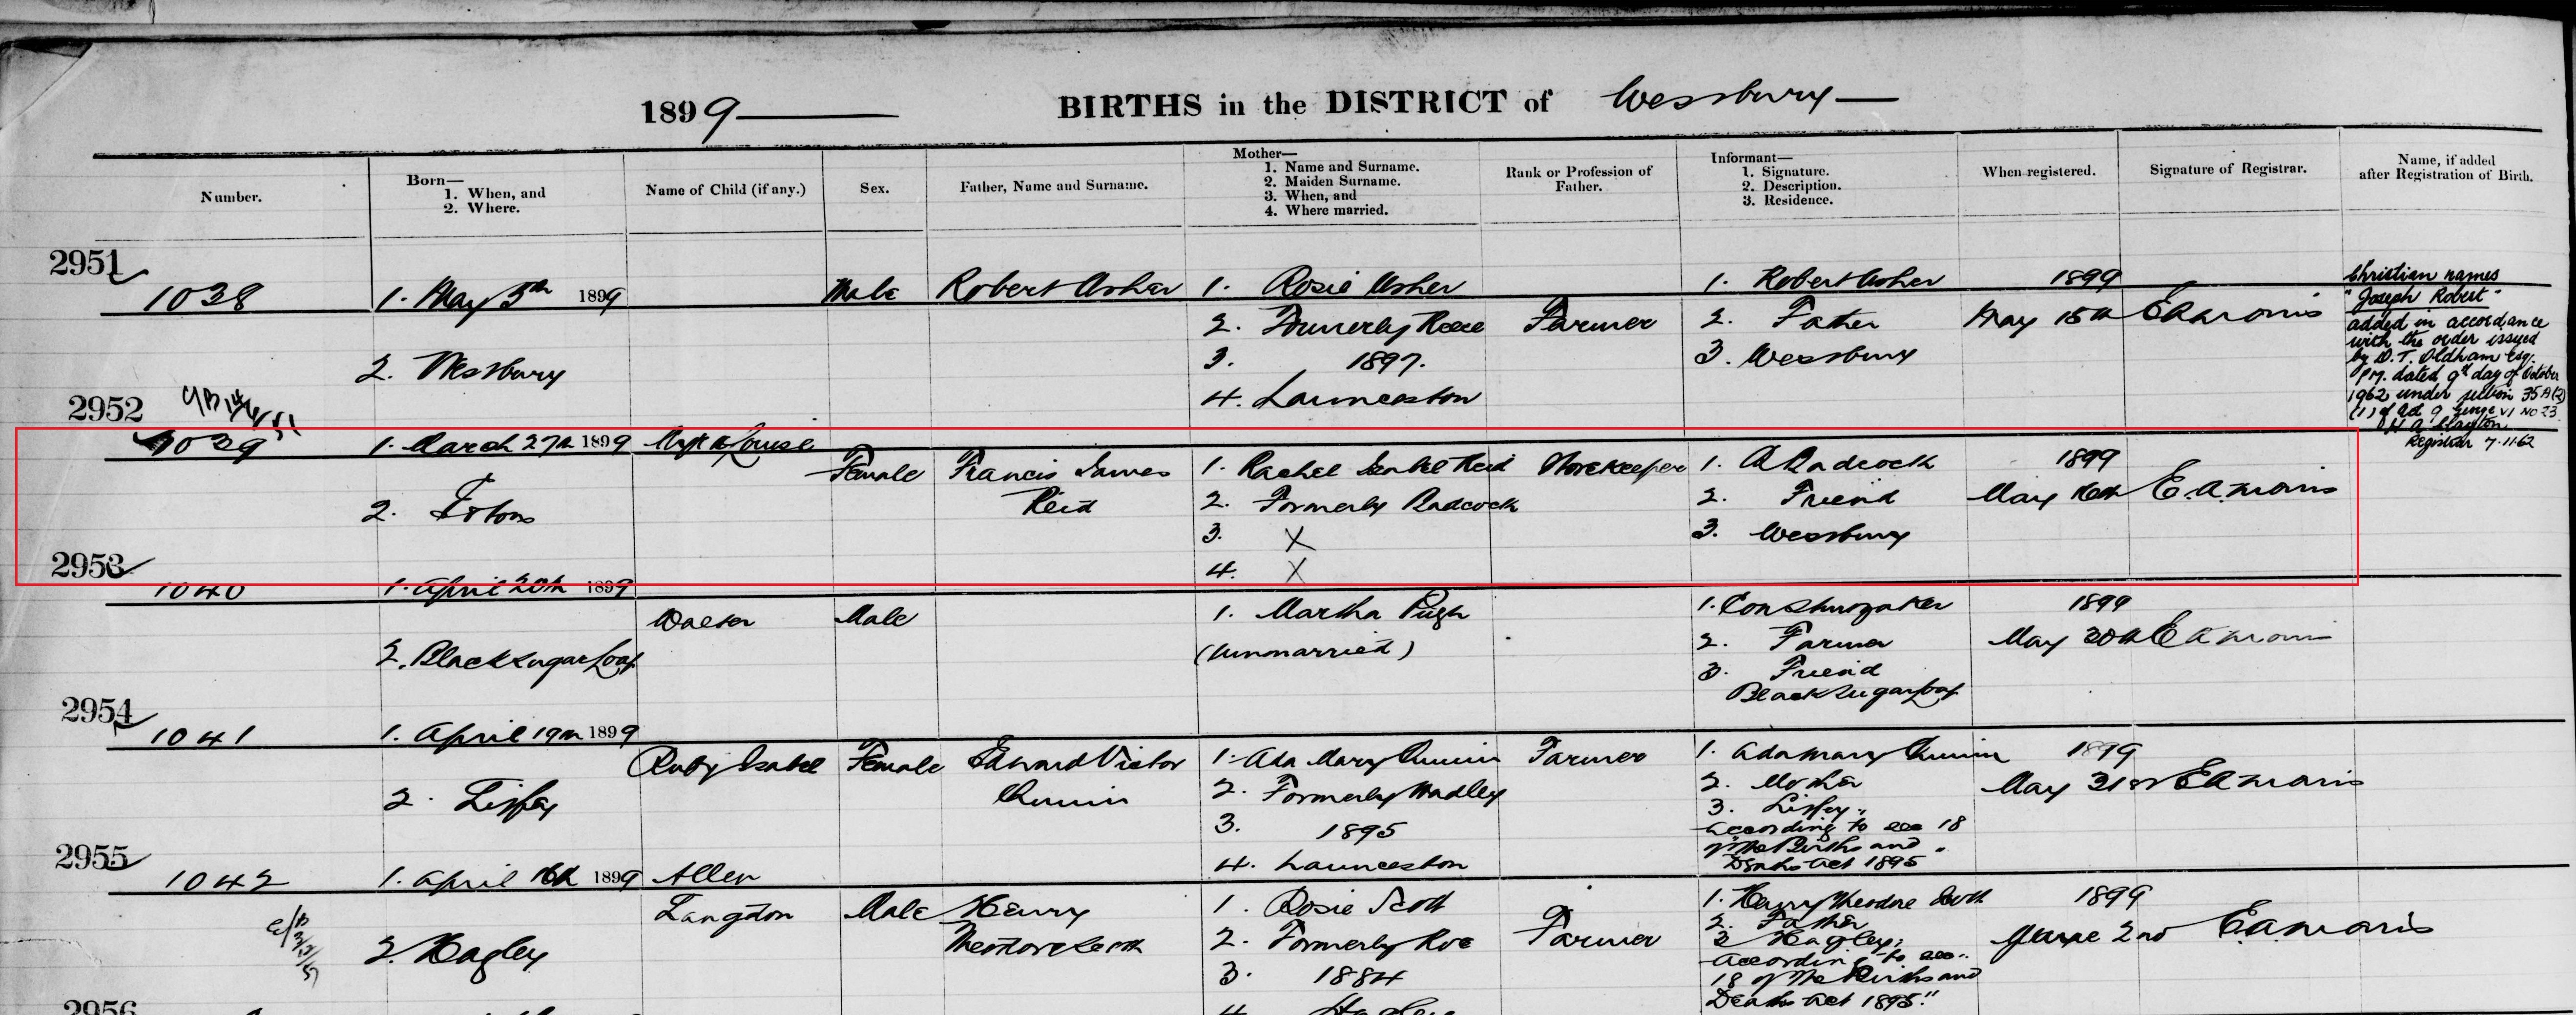 1899 BIRTHS in the DISTRICT of Wessbury
Number.
Born—
1. When, and
2. Where.
Name of Child (if any.)
Sex.
Father, Name and Surname.
Mother—
1. Name and Surname.
2. Maiden Surname.
3. When, and
4. Where married.
Rank or Profession of
Father.
Informant—
1. Signature.
2. Description.
3. Residence.
When registered.
Signature of Registrar.
Name, if added
after Registration of Birth.
2951
1038
1. May 5th 1899
2. Westbury
Male
Robert Asher
1. Rosie Asher
2. Formerly Reece
3. 1897.
4. Launceston
Farmer
1. Robert Asher
2. Father
3. Wessbury
1899
May 15th
E A Morris
Christian names
"Joseph Robert"
added in accordance
with the order issued
by D. T. Oldham Esq.
P.M. dated 9th day of October
1962 under section 35A(2)
(1) of Act 9 George VI No 23
Registrar 7.11.62
2952
1039
1. March 27th 1899
2.
Louise
Female
Francis James
Reid
1. Rachel Isabel Reid
2. Formerly Badcock
3. X
4. X
Storekeeper
1. A Badcock
2. Friend
3. Wessbury
1899
May 16th
E. A. Morris
2953
1040
1. April 20th 1899
2. Black Sugar Loaf
Walter
Male
1. Martha Pugh
(Unmarried)
1.
2. Farmer
3. Friend
Black Sugar Loaf
1899
May 30th
E A Morris
2954
1041
1. April 19th 1899
2. Liffey
Ruby Isabel
Female
Edward Victor
1. Ada Mary
2. Formerly Hadley
3. 1895
4. Launceston
Farmer
1. Ada Mary
2. Mother
3. Liffey
according to sec 18
of the Births and
Deaths Act 1895
1899
May 31st
E A Morris
2955
1042
1. April 16th 1899
2. Hagley
Allen
Langdon
Male
Henry
Theodore Scott
1. Rosie Scott
2. Formerly Roe
3. 1884
4. Hagley
Farmer
1. Henry Theodore Scott
2. Father
3. Hagley
according to sec.
18 of the Births and
Deaths Act 1895."
1899
June 2nd
E. A. Morris
2956